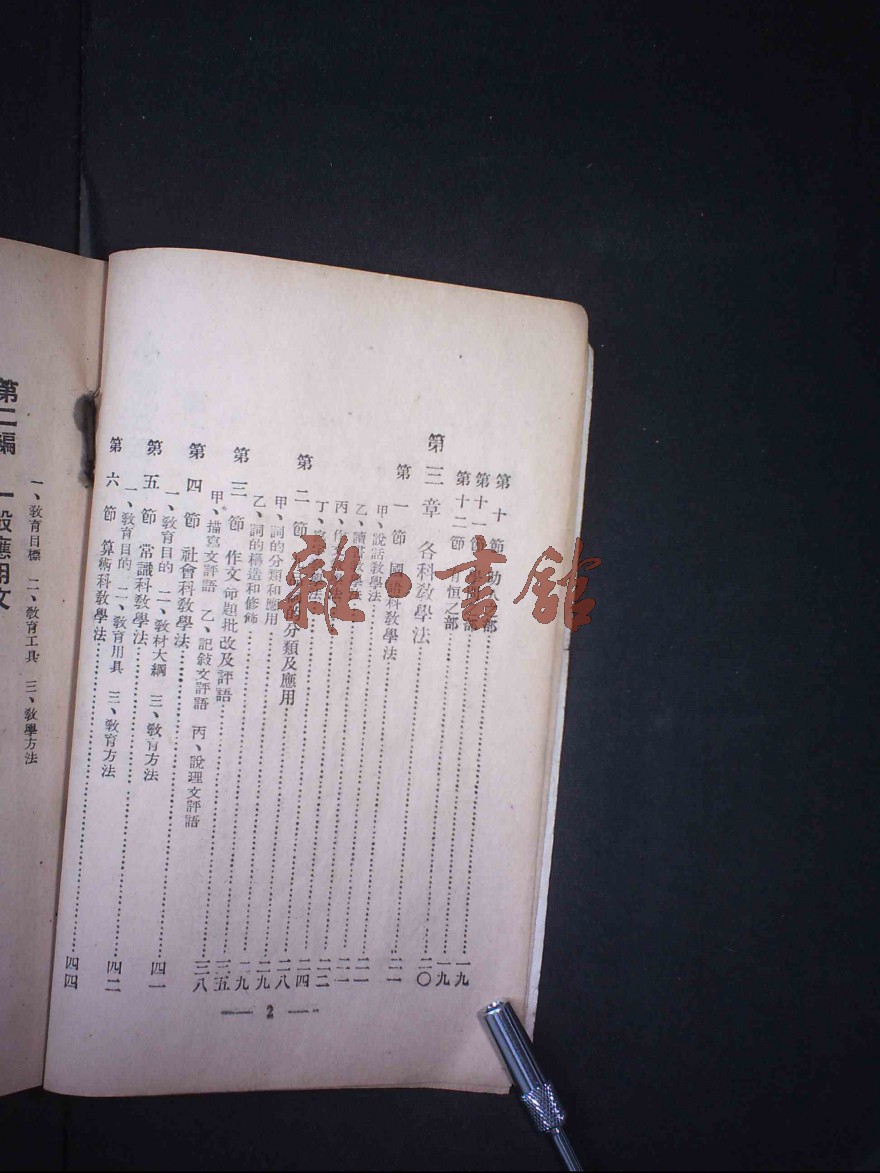 第十節 助人之部……一九
第十一節 部……一九
第十二節 月恒之部
第三章 各科敎學法……二〇
第一節 國語科敎學法……二一
甲、說話敎學法
乙、讀書敎學法……二一
丙、作文法……二一
丁、法……二二
第二節 詞的分類及應用……二四
甲、詞的分類和應用……二八
乙、詞的構造和修飾……二九
第三節 作文命題批改及評語……二九
甲、描寫文評語 乙、記敍文評語 丙、說理文評語……三五
第四節 社會科敎學法……三八
一、敎育目的 二、敎材大綱 三、敎育方法
第五節 常識科敎學法……四一
一、敎育目的 二、敎育用具 三、敎育方法
第六節 算術科敎學法……四二
四四
— 2 —
一、敎育目標 二、敎育工具 三、敎學方法
第二編 一般應用文
雜·書館